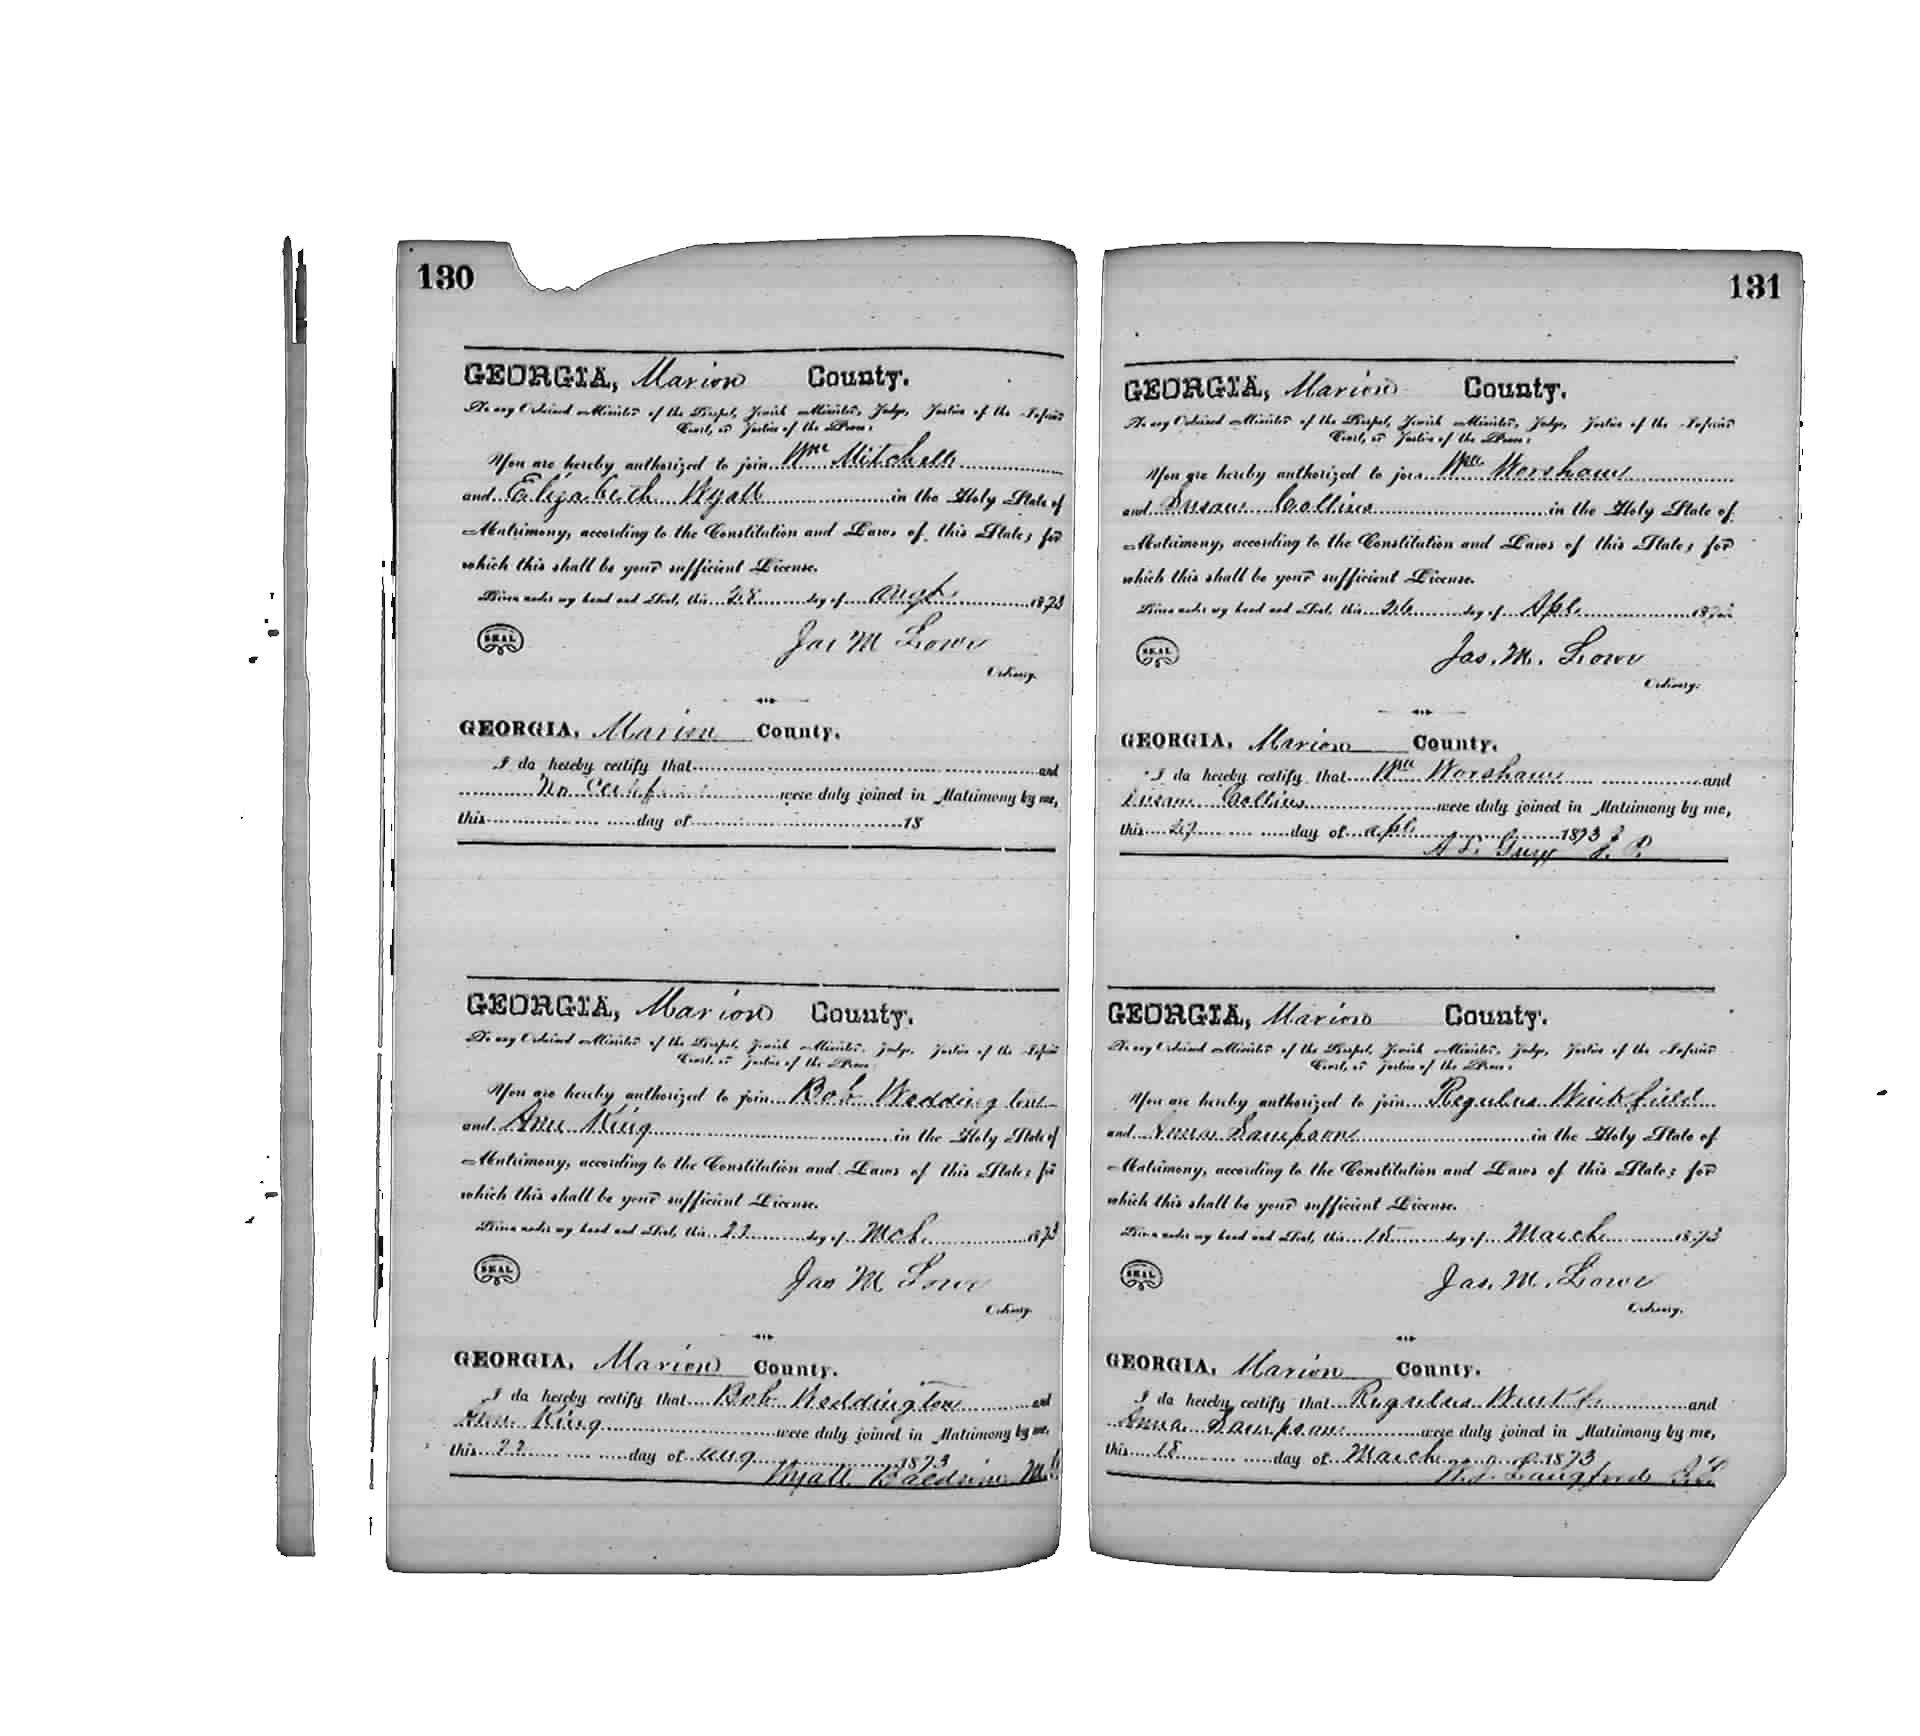 130
GEORGIA, Marion County.
To any Ordained Minister of the Gospel, Jewish Minister, Judge, Justice of the Inferior
Court, or Justice of the Peace:
You are hereby authorized to join Wm Mitchell
and Elizabeth Wyatt in the Holy State of
Matrimony, according to the Constitution and Laws of this State; for
which this shall be your sufficient License.
Given under my hand and Seal, this 28 day of Augt 1873
SEAL
Jas M Lowe
Ordinary.
GEORGIA, Marion County.
I do hereby certify that and
No were duly joined in Matrimony by me,
this day of 18
GEORGIA, Marion County.
To any Ordained Minister of the Gospel, Jewish Minister, Judge, Justice of the Inferior
Court, or Justice of the Peace:
You are hereby authorized to join Bob Weddington
and Ann King in the Holy State of
Matrimony, according to the Constitution and Laws of this State; for
which this shall be your sufficient License.
Given under my hand and Seal, this day of Mch 1873
SEAL
Jas M Lowe
Ordinary.
GEORGIA, Marion County.
I do hereby certify that Bob Weddington and
Ann King were duly joined in Matrimony by me,
this 22 day of Aug 1873
Wyatt Baldwin M.G.
131
GEORGIA, Marion County.
To any Ordained Minister of the Gospel, Jewish Minister, Judge, Justice of the Inferior
Court, or Justice of the Peace:
You are hereby authorized to join Wm Worsham
and Susan Collins in the Holy State of
Matrimony, according to the Constitution and Laws of this State; for
which this shall be your sufficient License.
Given under my hand and Seal, this 26 day of Apl 1873
SEAL
Jas. M. Lowe
Ordinary.
GEORGIA, Marion County.
I do hereby certify that Wm Worsham and
Susan Collins were duly joined in Matrimony by me,
this 27 day of Apl 1873
J. P.
GEORGIA, Marion County.
To any Ordained Minister of the Gospel, Jewish Minister, Judge, Justice of the Inferior
Court, or Justice of the Peace:
You are hereby authorized to join Regulus Winkfield
and Anna Sampson in the Holy State of
Matrimony, according to the Constitution and Laws of this State; for
which this shall be your sufficient License.
Given under my hand and Seal, this 15 day of March 1873
SEAL
Jas. M. Lowe
Ordinary.
GEORGIA, Marion County.
I do hereby certify that Regulus and
Anna Sampson were duly joined in Matrimony by me,
this 18 day of March 1873
W. J. Langford